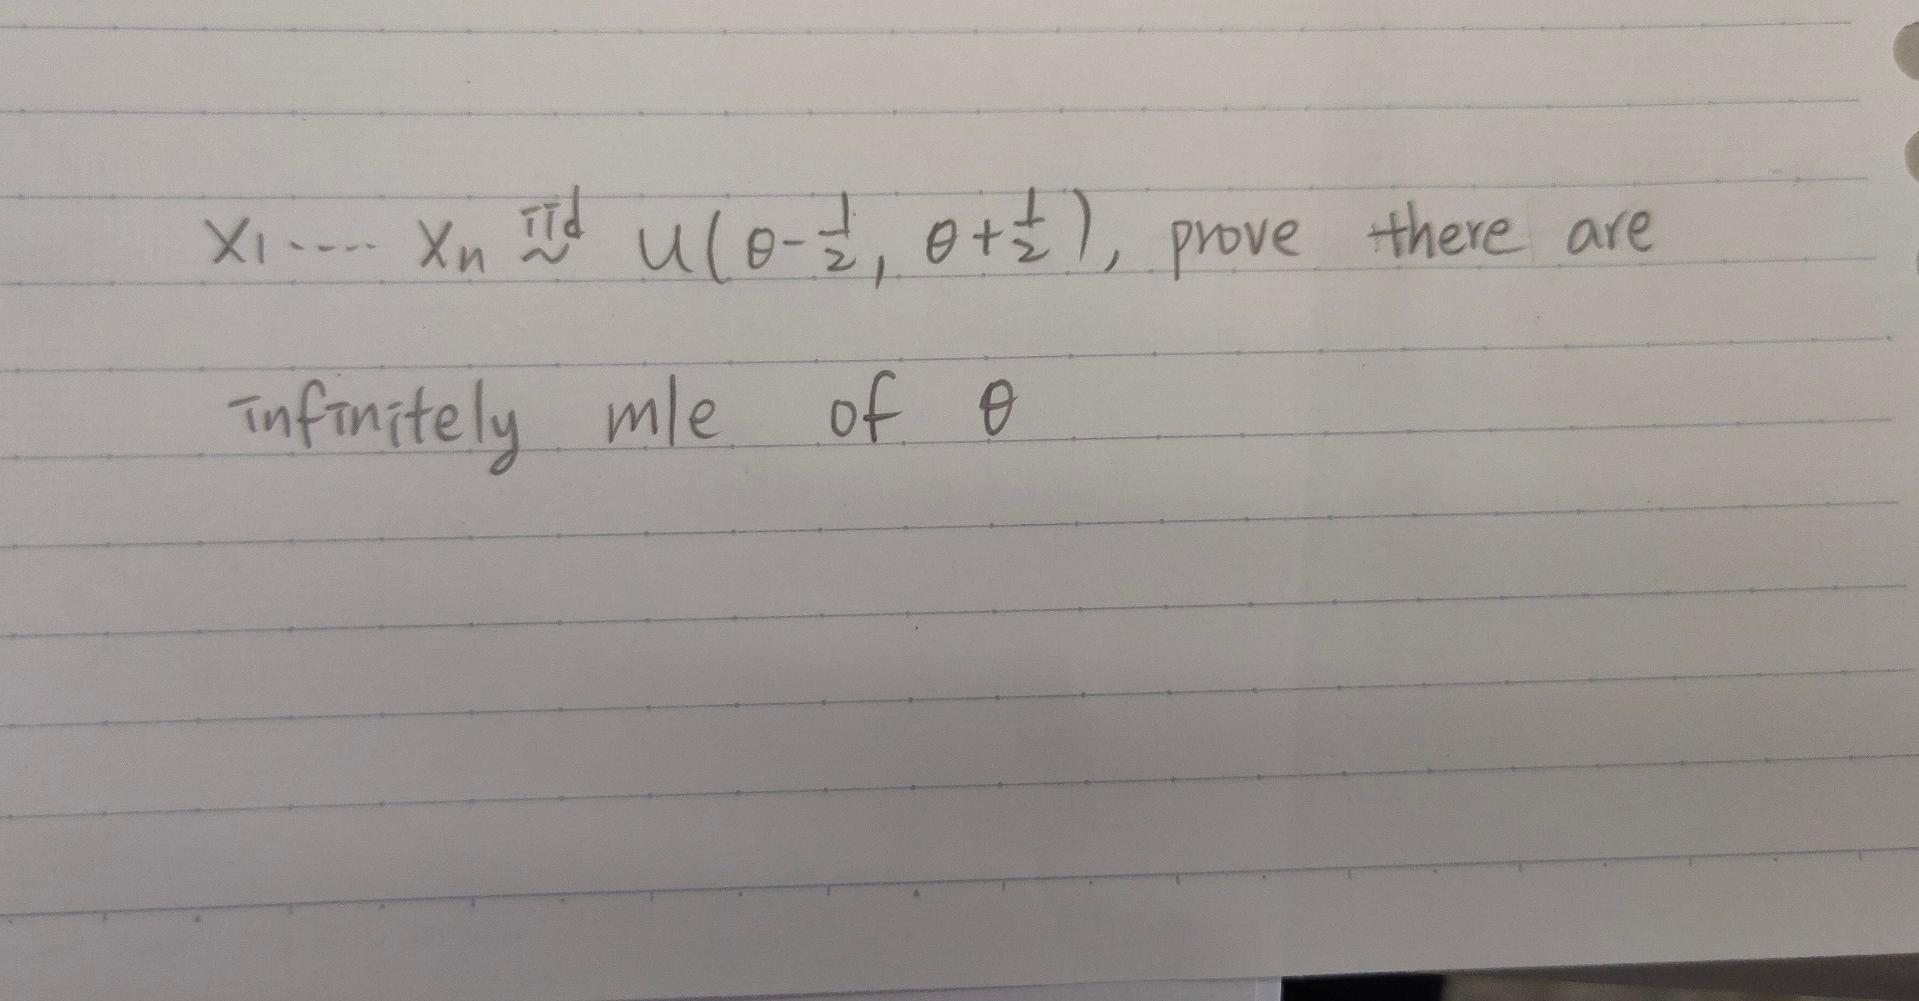 X1 ---- Xn iid ~ U(θ-1/2, θ+1/2), prove there are
infinitely mle of θ